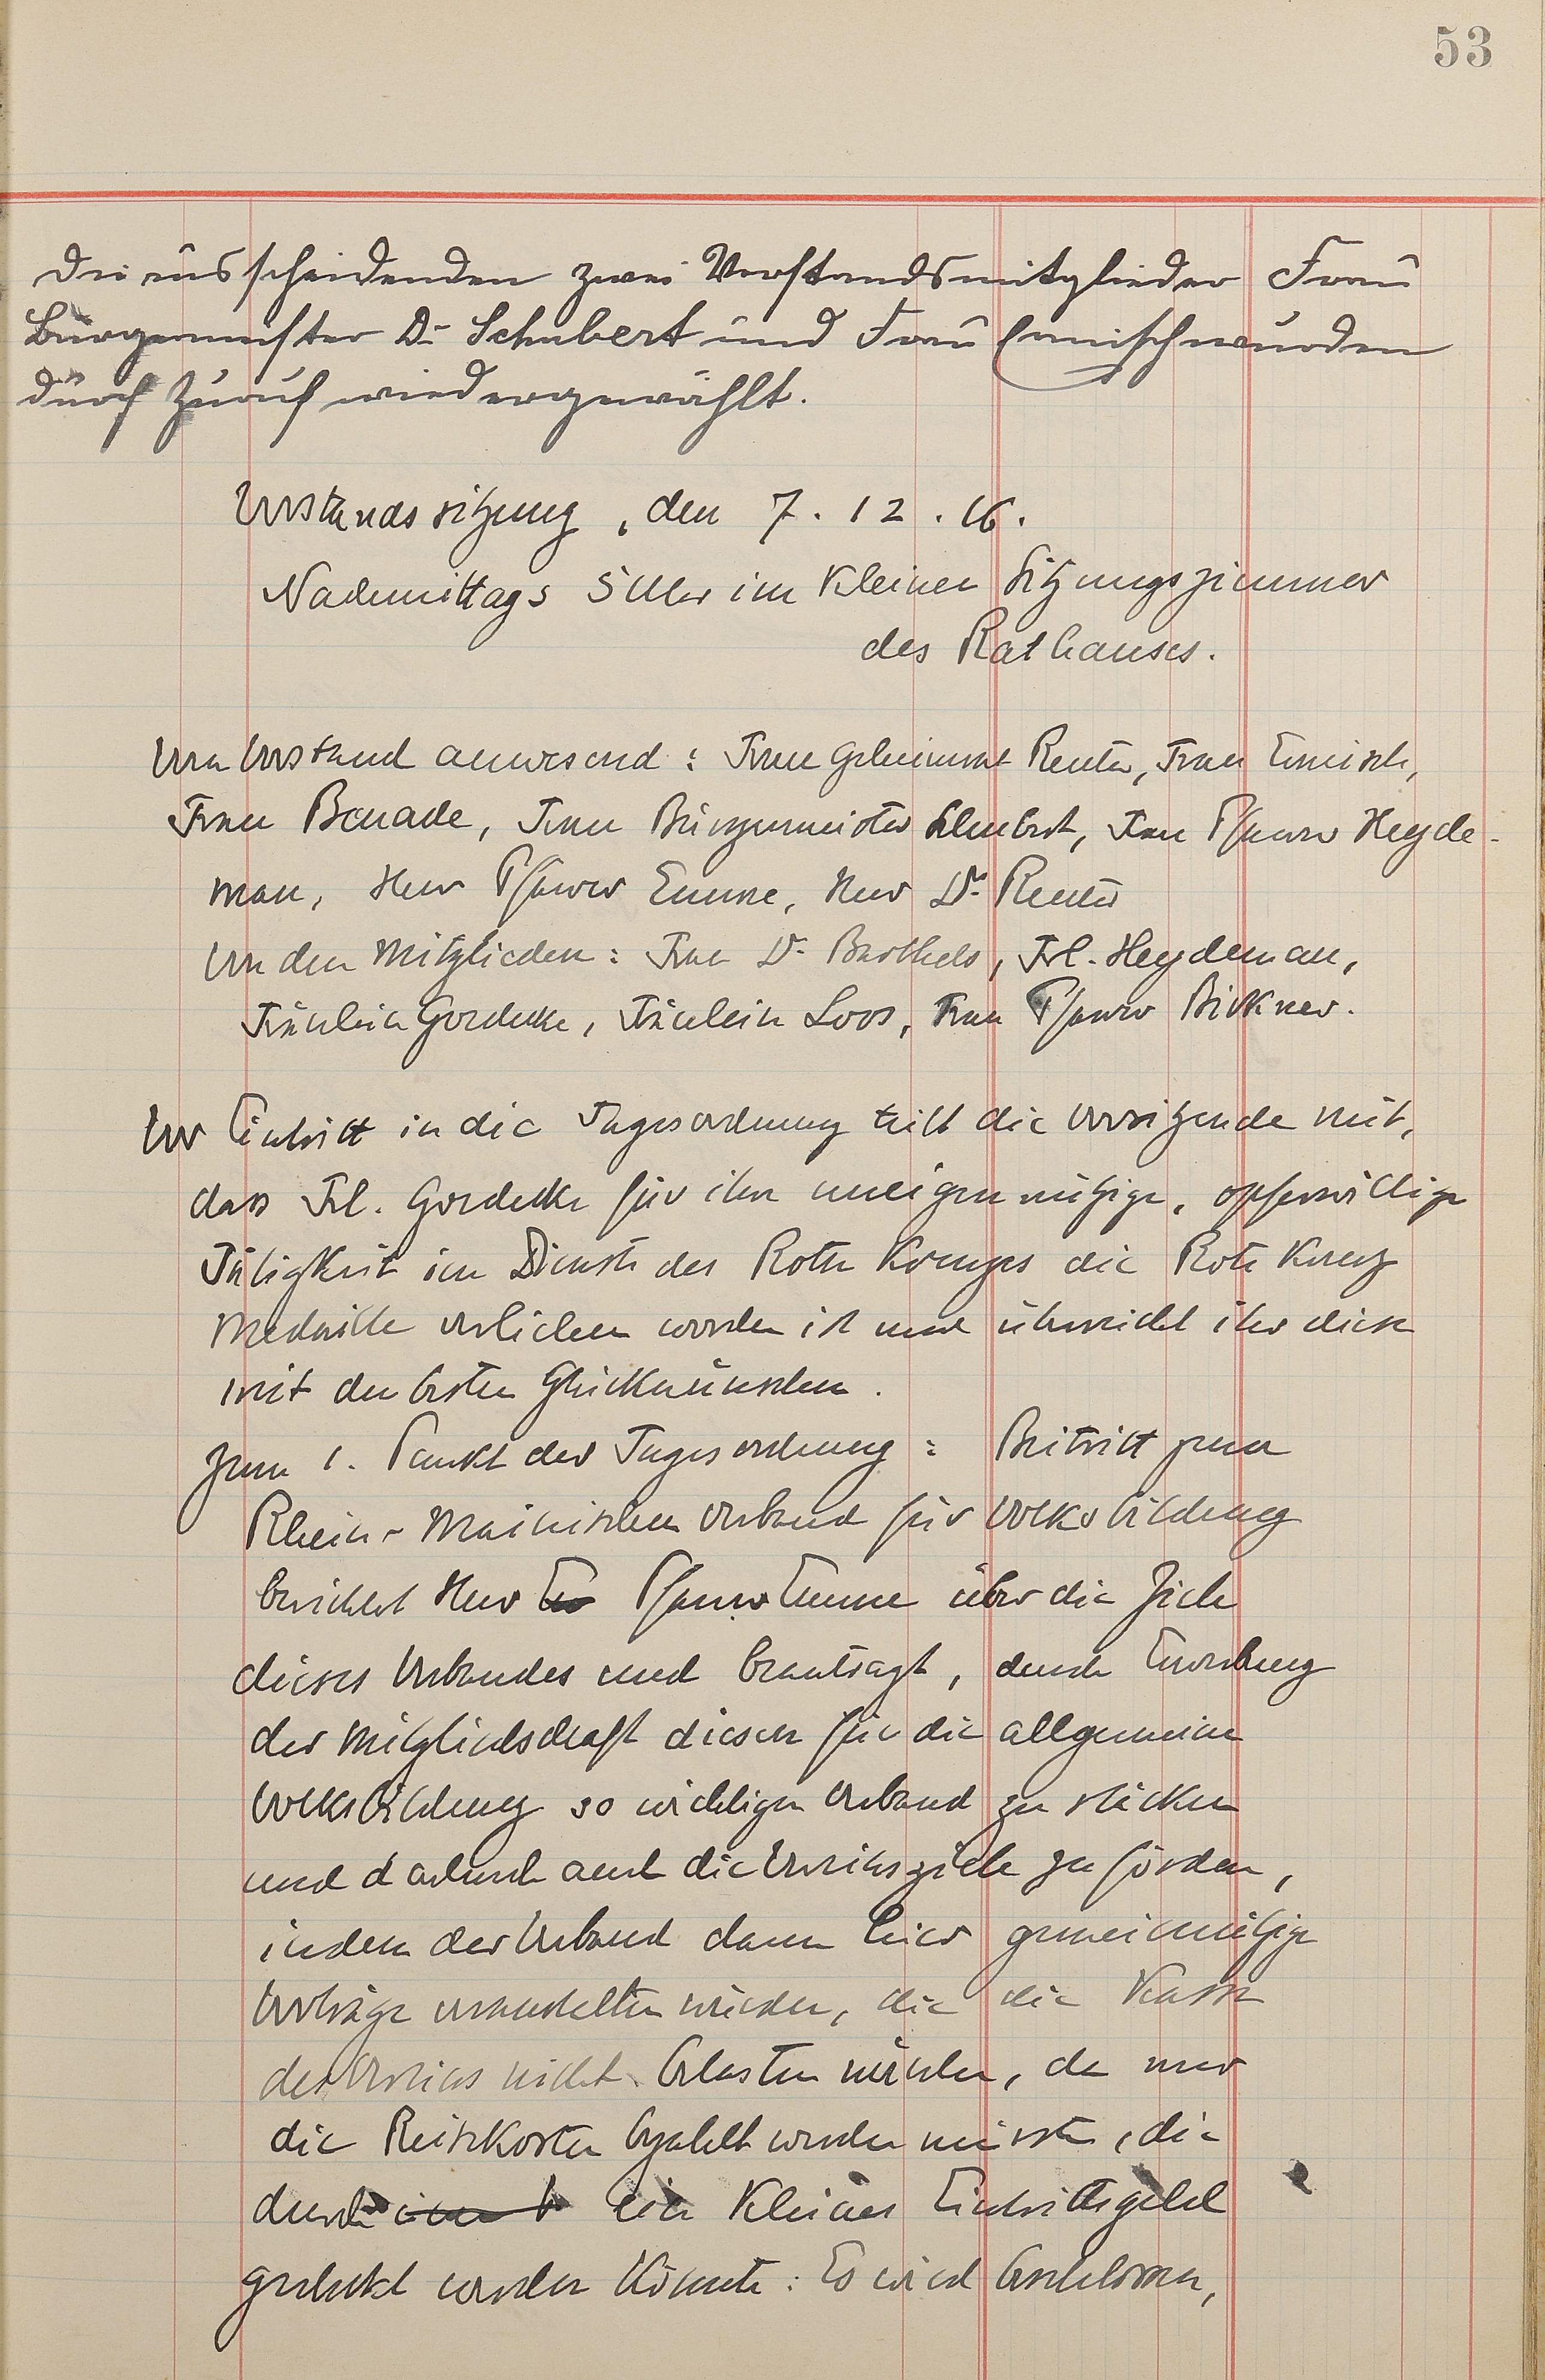 53
Die ausscheidenden zwei Vorstandsmitglieder Frau
Bürgermeister Dr. Schubert und Frau Emmisch wurden
durch Zuruf wiedergewählt.
Vorstandssitzung, den 7. 12. 16.
Nachmittags 5 Uhr im Kleinen Sitzungszimmer
des Rathauses.
Vom Vorstand anwesend: Frau Geheimrat Reuter, Frau Emisch,
Frau Benade, Frau Bürgermeister Schubert, Frau Pfarrer Heyde-
man, Herr Pfarrer Emme, Herr Dr. Reuter
Von den Mitgliedern: Frau Dr. Barthels, Frl. Heydeman,
Fräulein Gordecke, Fräulein Loos, Frau Pfarrer Birkner.
Vor Eintritt in die Tagesordnung teilt die Vorsitzende mit,
dass Frl. Gordecke für ihre uneigennützige, opferwillige
Tätigkeit im Dienste des Roten Kreuzes die Rote Kreuz
Medaille verliehen worden ist und überreicht ihr diese
mit den besten Glückwünschen.
Zum 1. Punkt der Tagesordnung: Beitritt zum
Rhein-Mainischen Verband für Volksbildung
berichtet Herr Pfarrer Emme über die Ziele
dieses Verbandes und beantragt, durch Erwerbung
der Mitgliedschaft diesen für die allgemeine
Volksbildung so wichtigen Verband zu stärken
und dadurch auch die Vereinsziele zu fördern,
indem der Verband dann hier gemeinnützige
Vorträge veranstalten würde, die die Kasse
des Vereins nicht belasten würden, da nur
die Reisekosten bezahlt werden müssten, die
durch ein kleines Eintrittsgeld
gedeckt werden könnte: Es wird beschlossen,